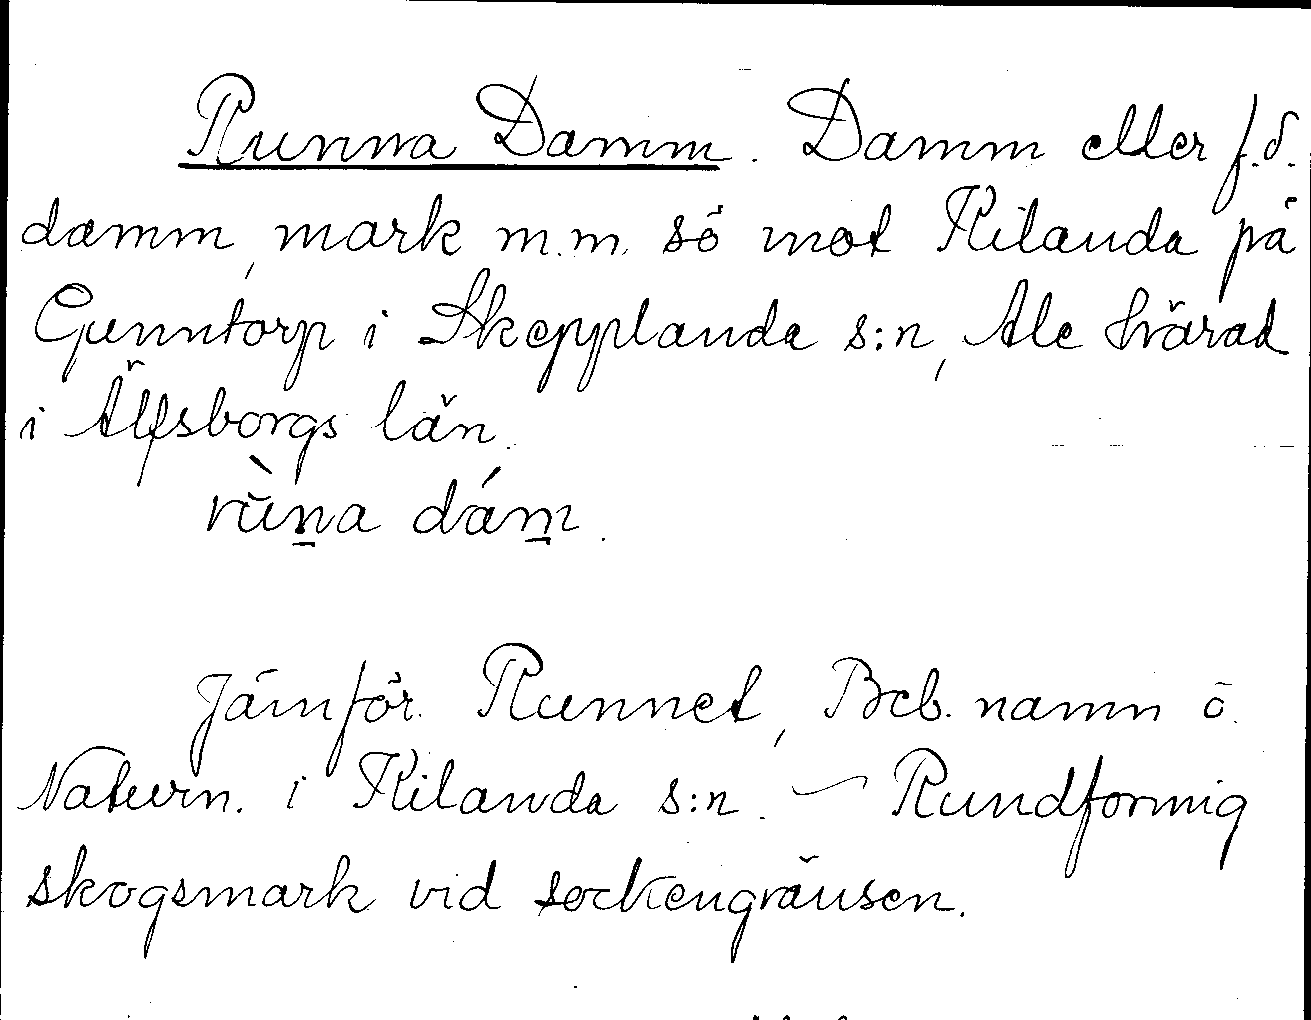 Runna Damm. Damm eller f.d.
damm, mark m.m. sö mot Kilanda på
Gunntorp i Skepplanda s:n, Ale härad
i Älfsborgs län.
rùn̲a dám̲.
Jämför. Runnet, Beb. namn ö.
Naturn. i Kilanda s:n. — Rundformig
skogsmark vid sockengränsen.